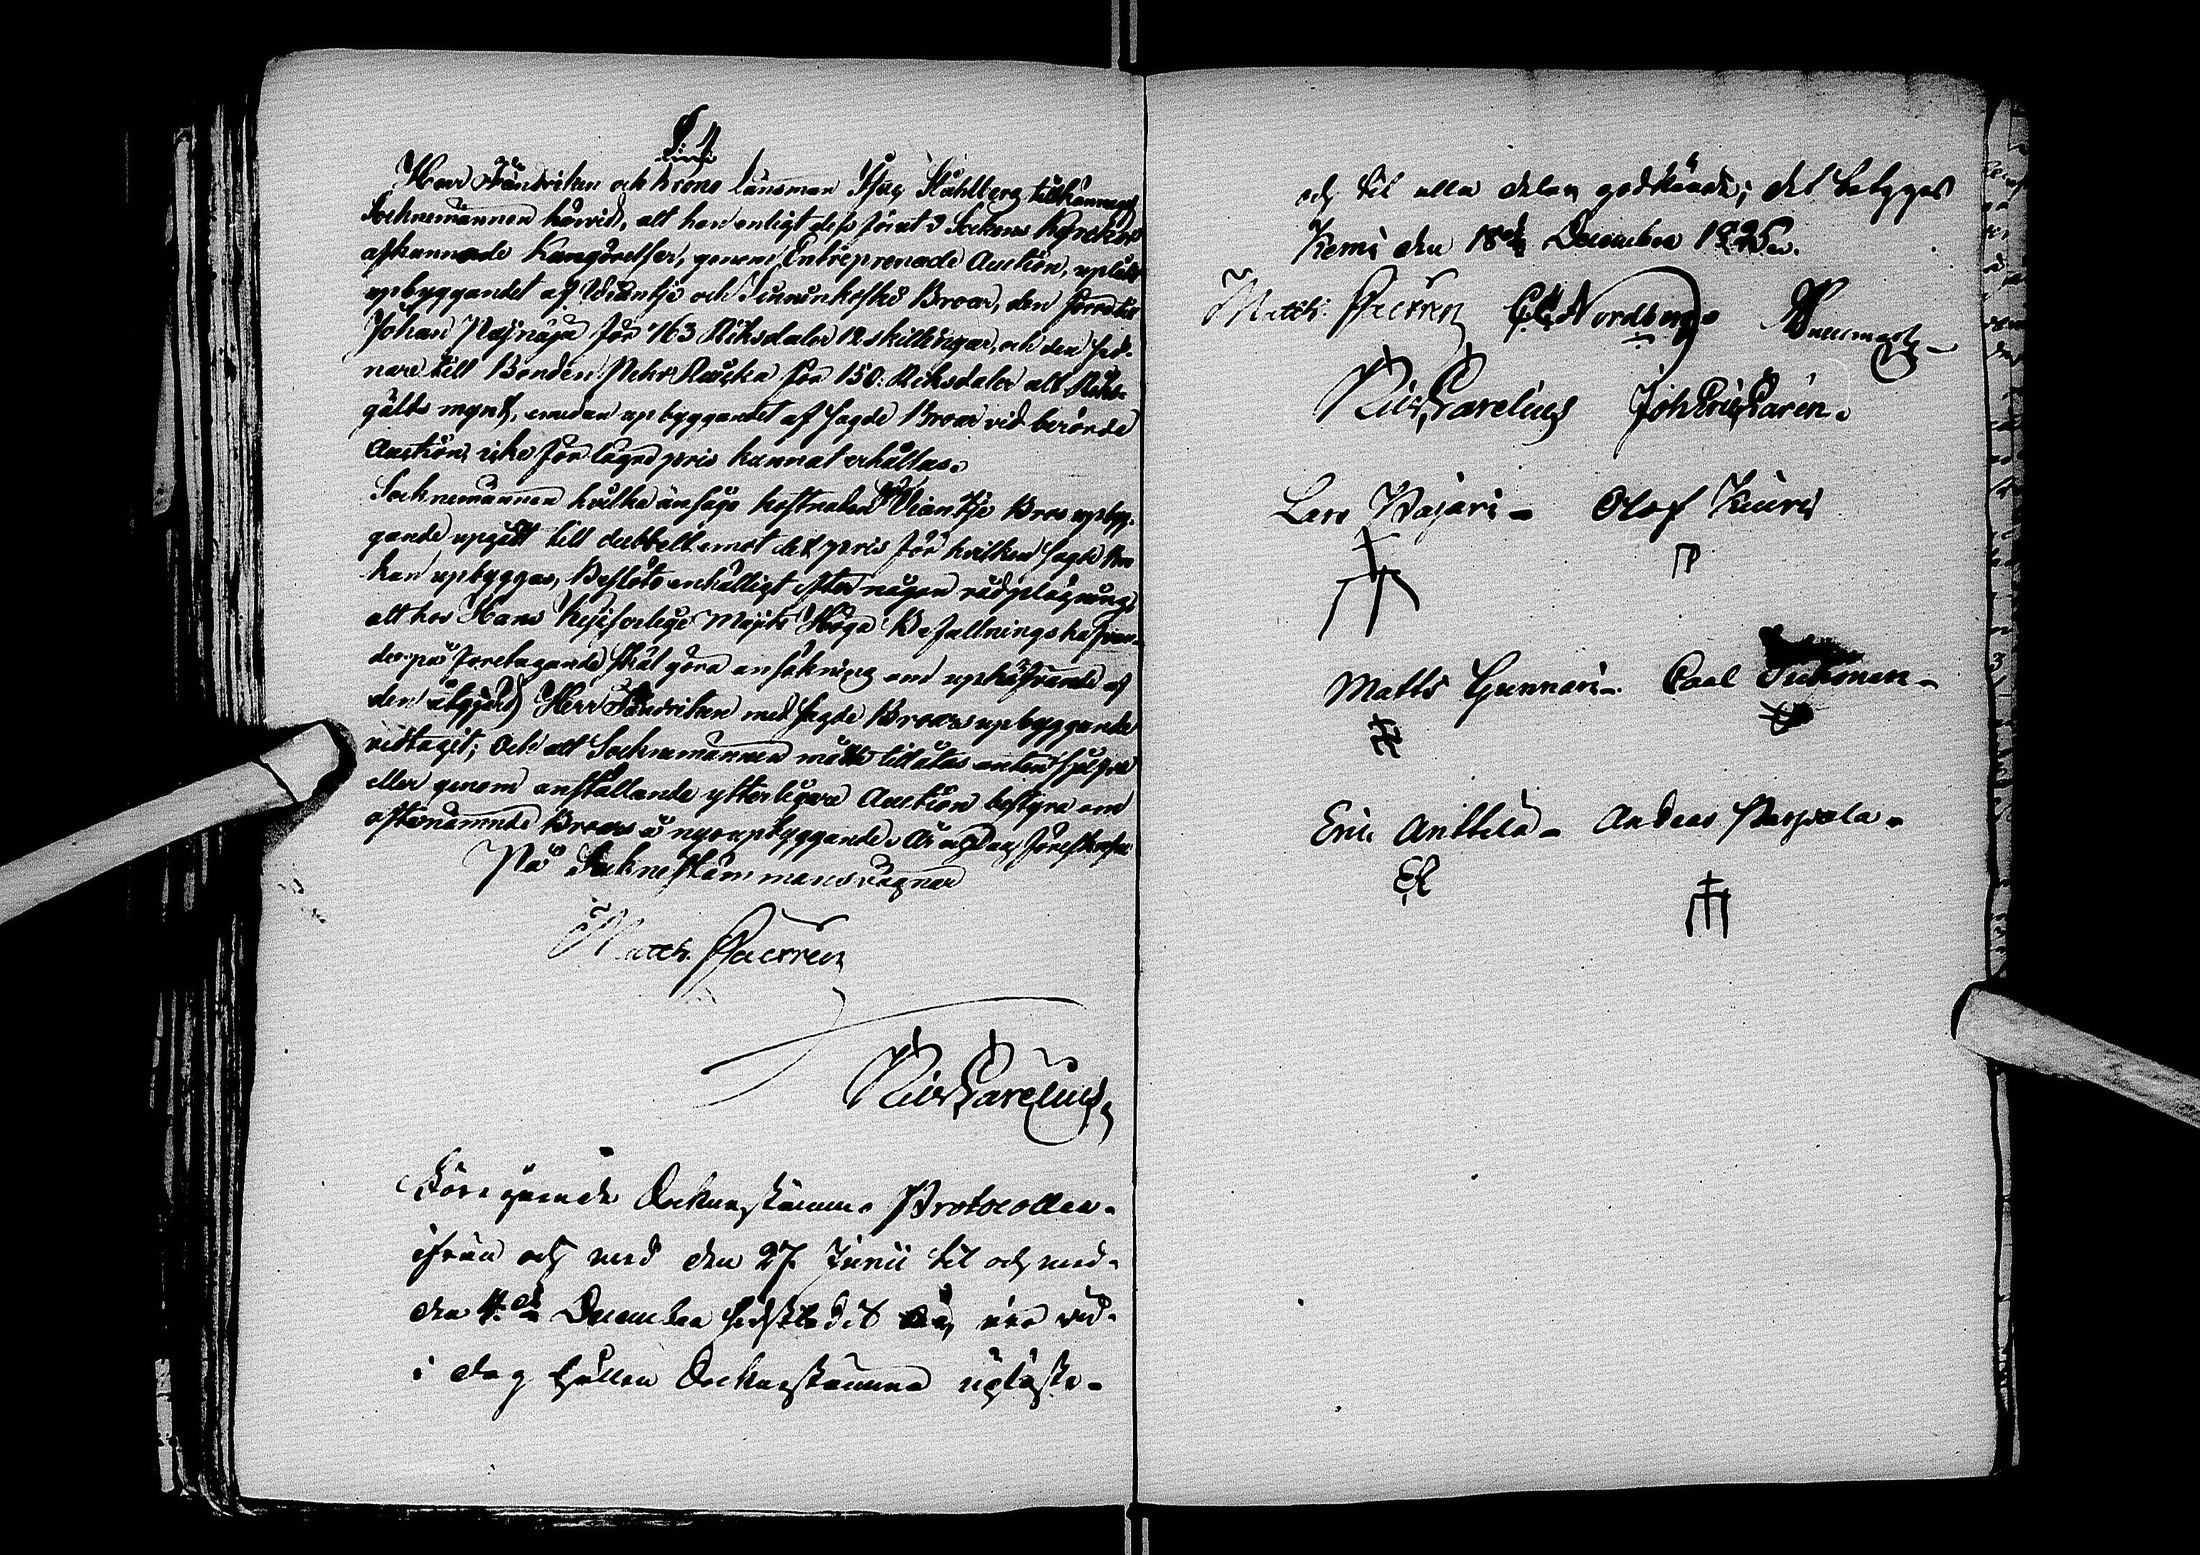 § 4
Herr Fändriken och Krono länsman Isac Ståhlberg tillkännagaf
Socknemännen härvid, att han enligt dess förut i Sockens Kyrckor
afkunnade Kungörelser, genom Entreprenade Auction, uplåtit
upbyggandet af Viantje och Broar, den förra till
Johan för 163 Riksdaler 12 skillingar, och den sed-
nare till Bonden Pehr för 150. Riksdaler allt Riks-
gälds mynt, emedan upbyggandet af sagde Broar vid berörde
Auction icke för lägre pris kunnat erhållas.
Socknemännen hvilka ansågo kostnaden för Viantje Bros upbyg-
gande upgått till dubbelt emot det pris för hvilken sagde Bro
kan upbyggas, Beslöto enhälligt efter någon rådplägning,
att hos Hans Kejserlige Majits Höga Befallningshafvan-
de på företagande skäl göra ansökning om uphäfvande af
den åtgjerd Herr Fändriken med sagde Broars upbyggande
vidtagit; Och att Socknemännen måtte tillåtas antend sjelfve
eller genom anställande ytterligare Auction bestyra om
oftanämnde Broars å nyo upbyggande. År og Dag föreskrefne
På Sockne Stämmans vägnar
Matth. Pacxen
Nils Carelius
Föregående Sockne stämmo Protocoller
ifrån och med den 27. Junii til och med
den 4de December sistledit är, äro vid
i dag hållen Sockne stämma upläste
och til alla delar godkände; det betygas
Kemi den 18de December 1825.
Matth. Pacxen C. E. Nordberg
Nils Carelius Joh Eric Carén.
Lars Vajari Olof Kiuri
Matts Gunnari Carl
Eric Anttila Anders